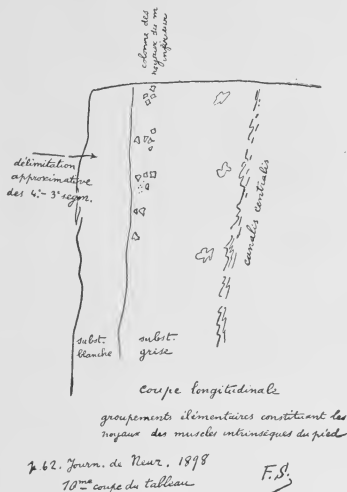 colonne des
noyaux du m
inférieur
délimitation
approximative
des 4.e- 3e segm.
canalis centralis
subst.
blanche
subst.
grise
Coupe longitudinale
groupements élémentaires constituant les
noyaux des muscles intrinsèques du pied
p. 62. Journ. de Neur. 1898
10me coupe du tableau
F.S.